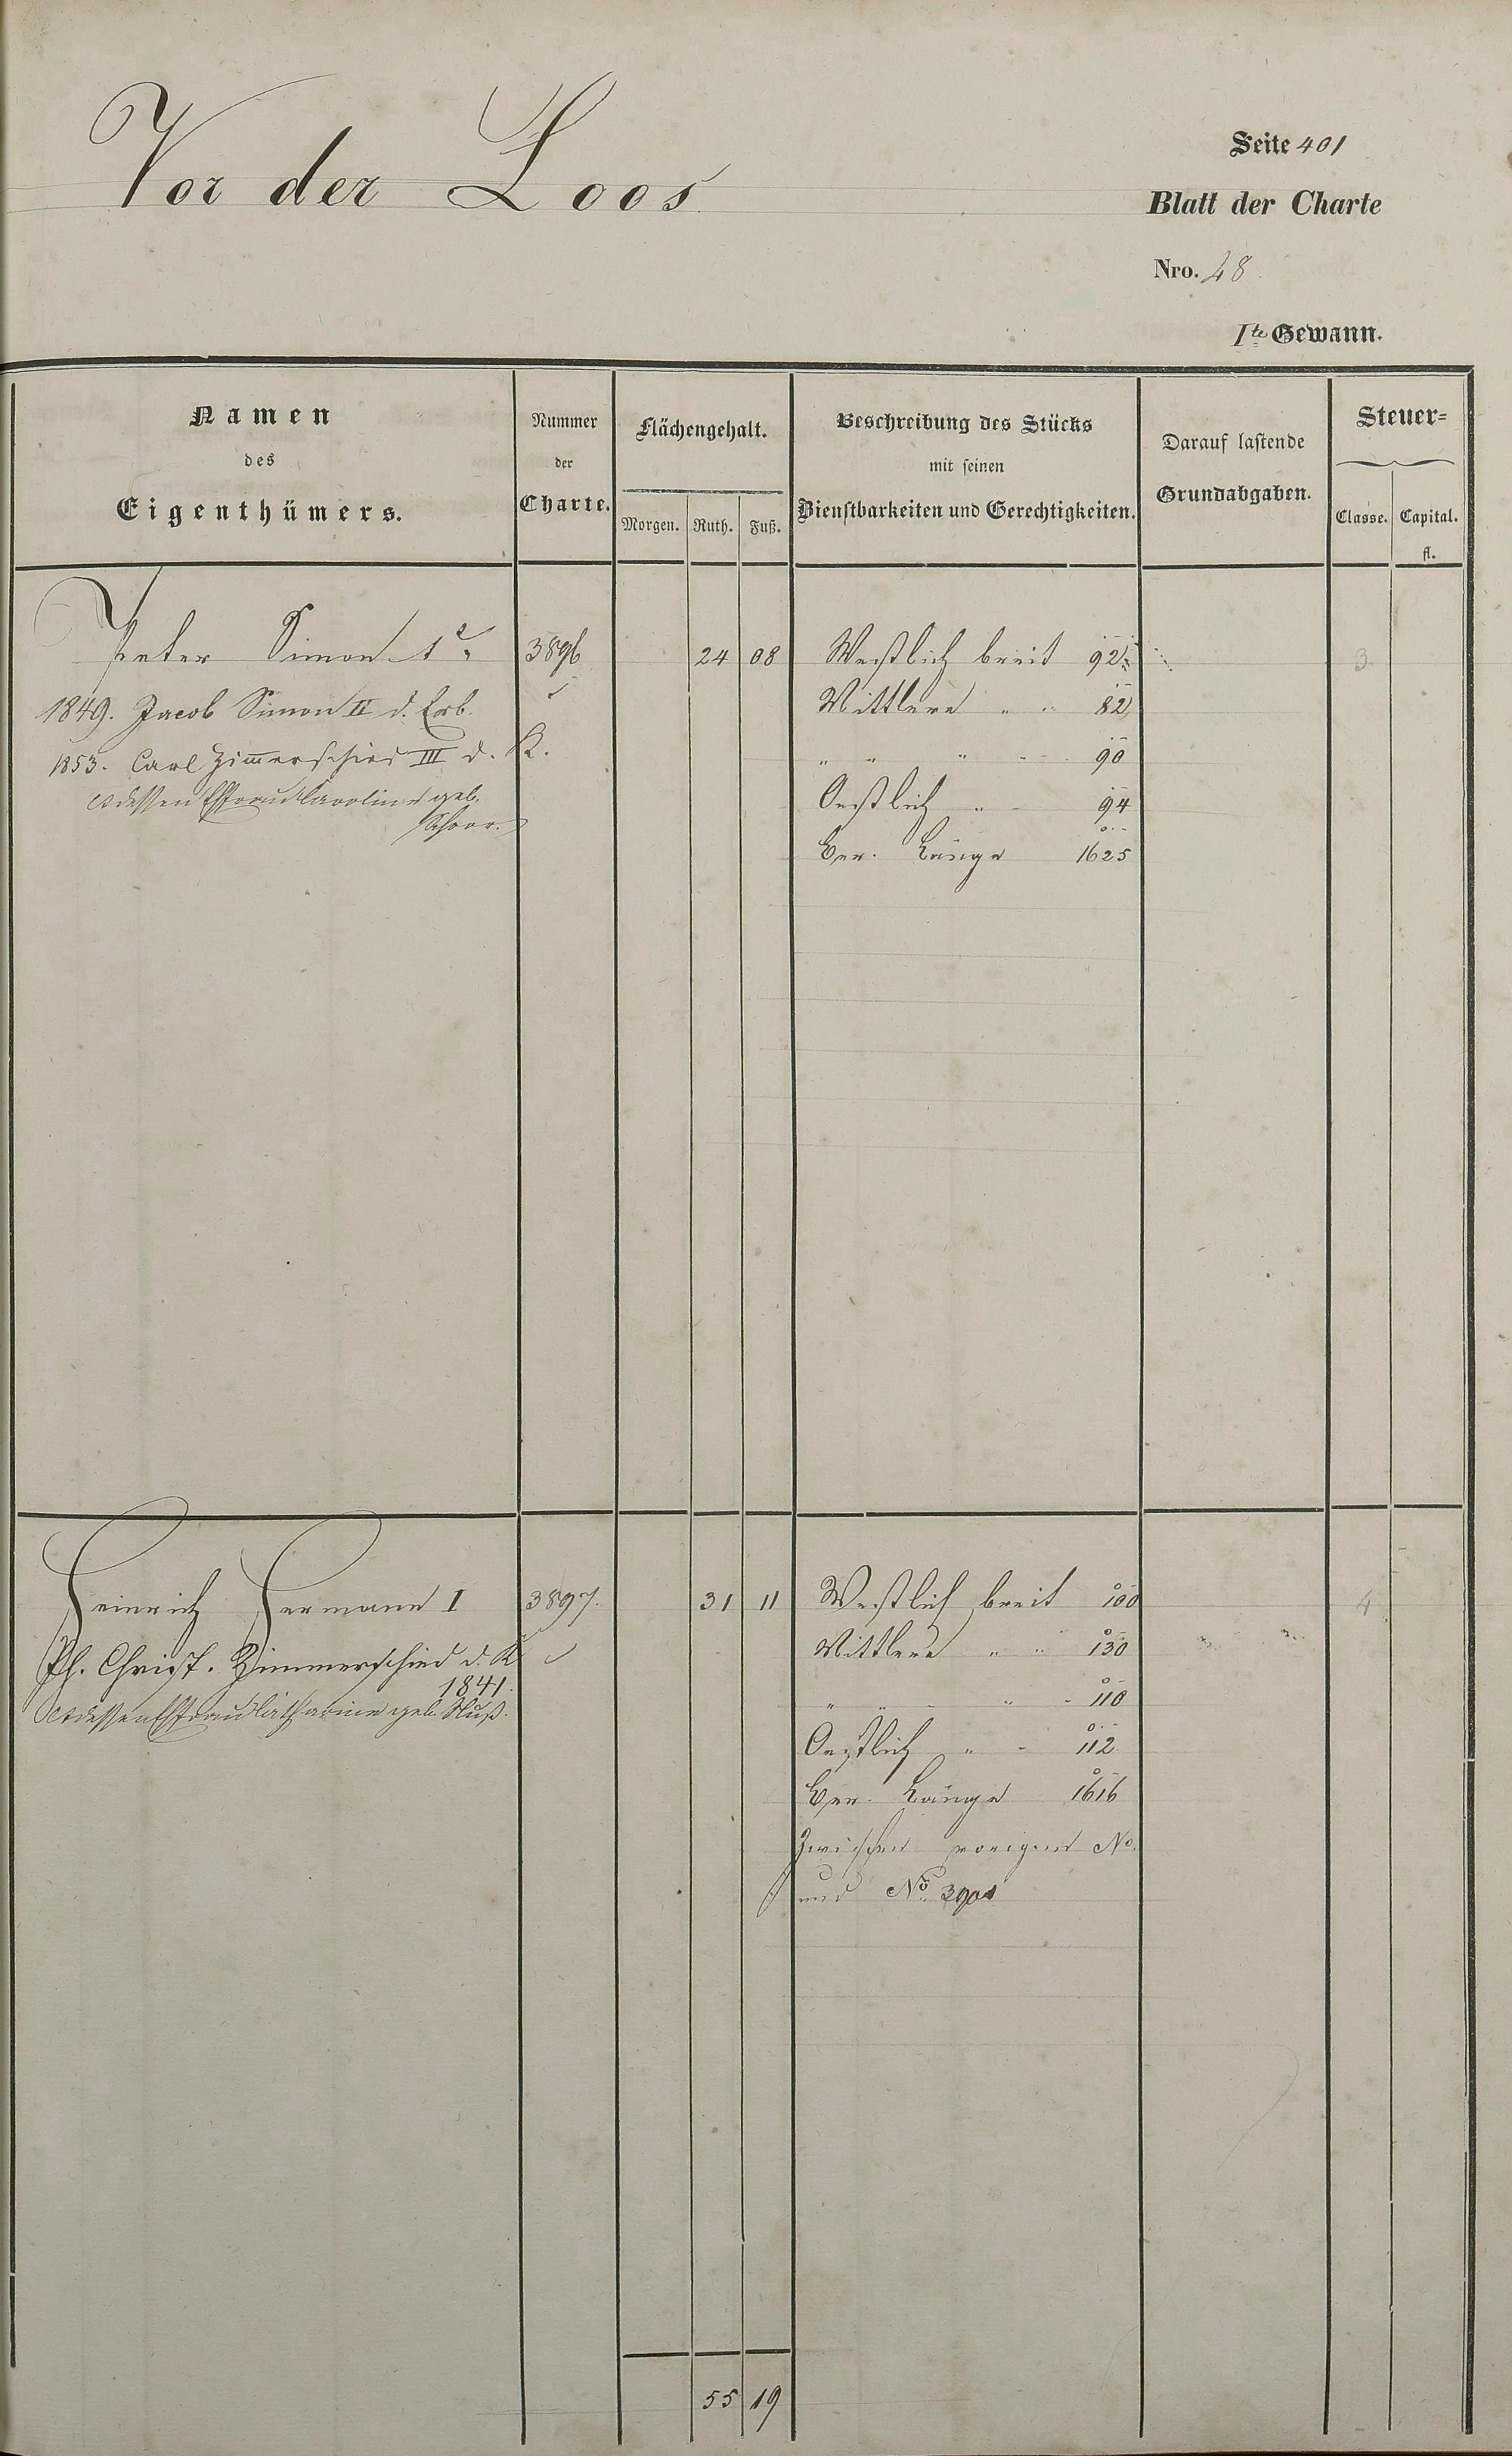 Vor der Loos
Seite 401
Blatt der Charte
Nro. 48
Ite Gewann.
Namen
des
Eigenthümers.
Nummer
der
Charte.
Flächengehalt.
Morgen. Ruth. Fuß.
Beschreibung des Stücks
mit seinen
Dienstbarkeiten und Gerechtigkeiten.
Darauf lastende
Grundabgaben.
Steuer-
Classe. Capital.
fl.
Peter Simon 1r 3896 24 08 Westlich breit 92 3
1849. Jacob Simon II d. Erb. Mittlere " " 82
1853. Carl Zimmerschied III d. K. " " " " 90
et dessen Ehefrau Caroline geb. Oestlich " " 94
Schorr.
Ger. Länge 1625
Heinrich Hermann I 3897. 31 11 Westlich breit 100 4
Ph. Christ. Zimmerschied d. K Mittlere " " 130
1841.
" " " " 110
et dessen Ehefrau Catharine geb. Nuß.
Oestlich " " 112
Ger. Länge 1616
Zwischen vorigem No.
und No. 3901
55 19